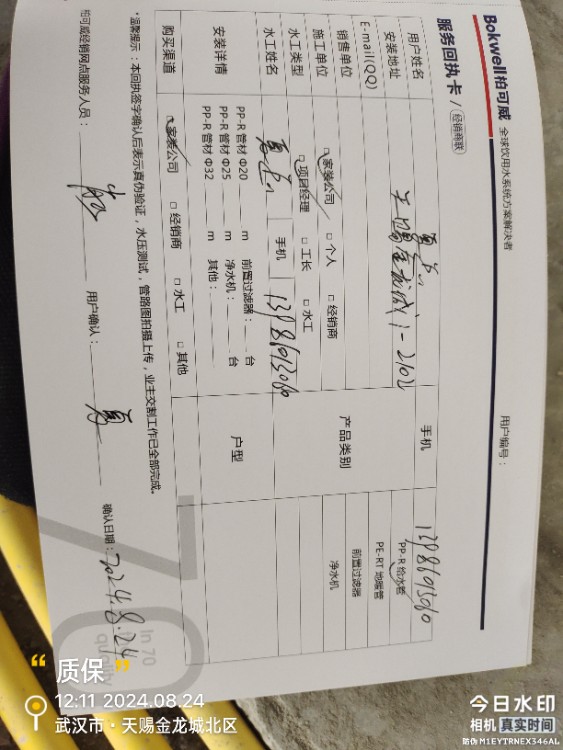 Bokwell柏可威 全球饮用水系统方案解决者
服务回执卡 / 经销商联
用户编号：
用户姓名 夏 手机 13986193060
安装地址 天赐金龙城1-2102
产品类别
PP-R 给水管
PE-RT 地暖管
前置过滤器
净水机
E-mail(QQ)
销售单位 □ 家装公司 □ 个人 □ 经销商
施工单位
水工类型 □ 项目经理 □ 工长 □ 水工
水工姓名 夏 手机 13986193060
安装详情 户型
PP-R 管材 Φ20 m 前置过滤器： 台
PP-R 管材 Φ25 m 净水机： 台
PP-R 管材 Φ32 m 其他：
购买渠道 □ 家装公司 □ 经销商 □ 水工 □ 其他
*温馨提示：本回执签字确认后表示真伪验证，水压测试，管路图拍摄上传，业主交割工作已全部完成。
柏可威经销网点服务人员： 用户确认： 夏 确认日期： 2024.8.24
In 70
quality
“ 质保 ”
12:11 2024.08.24
武汉市·天赐金龙城北区
今日水印
相机 真实时间
防伪 M1EYTRNEX346AL